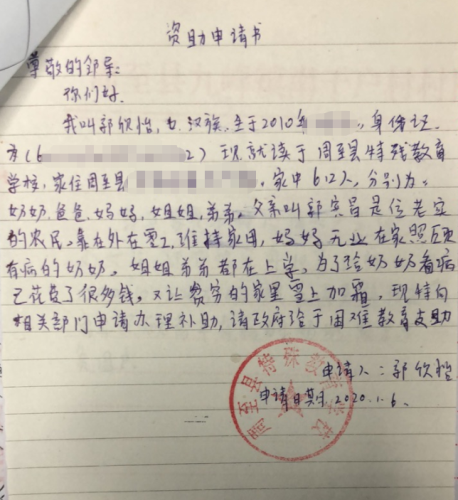 资助申请书
尊敬的领导:
你们好.
我叫郭欣怡, 女. 汉族. 生于2010年 身份证
号(6 2) 现就读于周至县特殊教育
学校, 家住周至县 . 家中6口人, 分别为:
奶奶. 爸爸, 妈妈, 姐姐, 弟弟. 父亲叫郭 是位老实
的农民, 靠在外在零工, 维持家用, 妈妈无业在家照顾
有病的奶奶, 姐姐弟弟都在上学, 为了给奶奶看病
已花费了很多钱, 又让贫穷的家里雪上加霜, 现特向
相关部门申请办理补助, 请政府给于困难教育支助
申请人: 郭欣怡
申请日期 2020.1.6.
周至县特殊教育学校